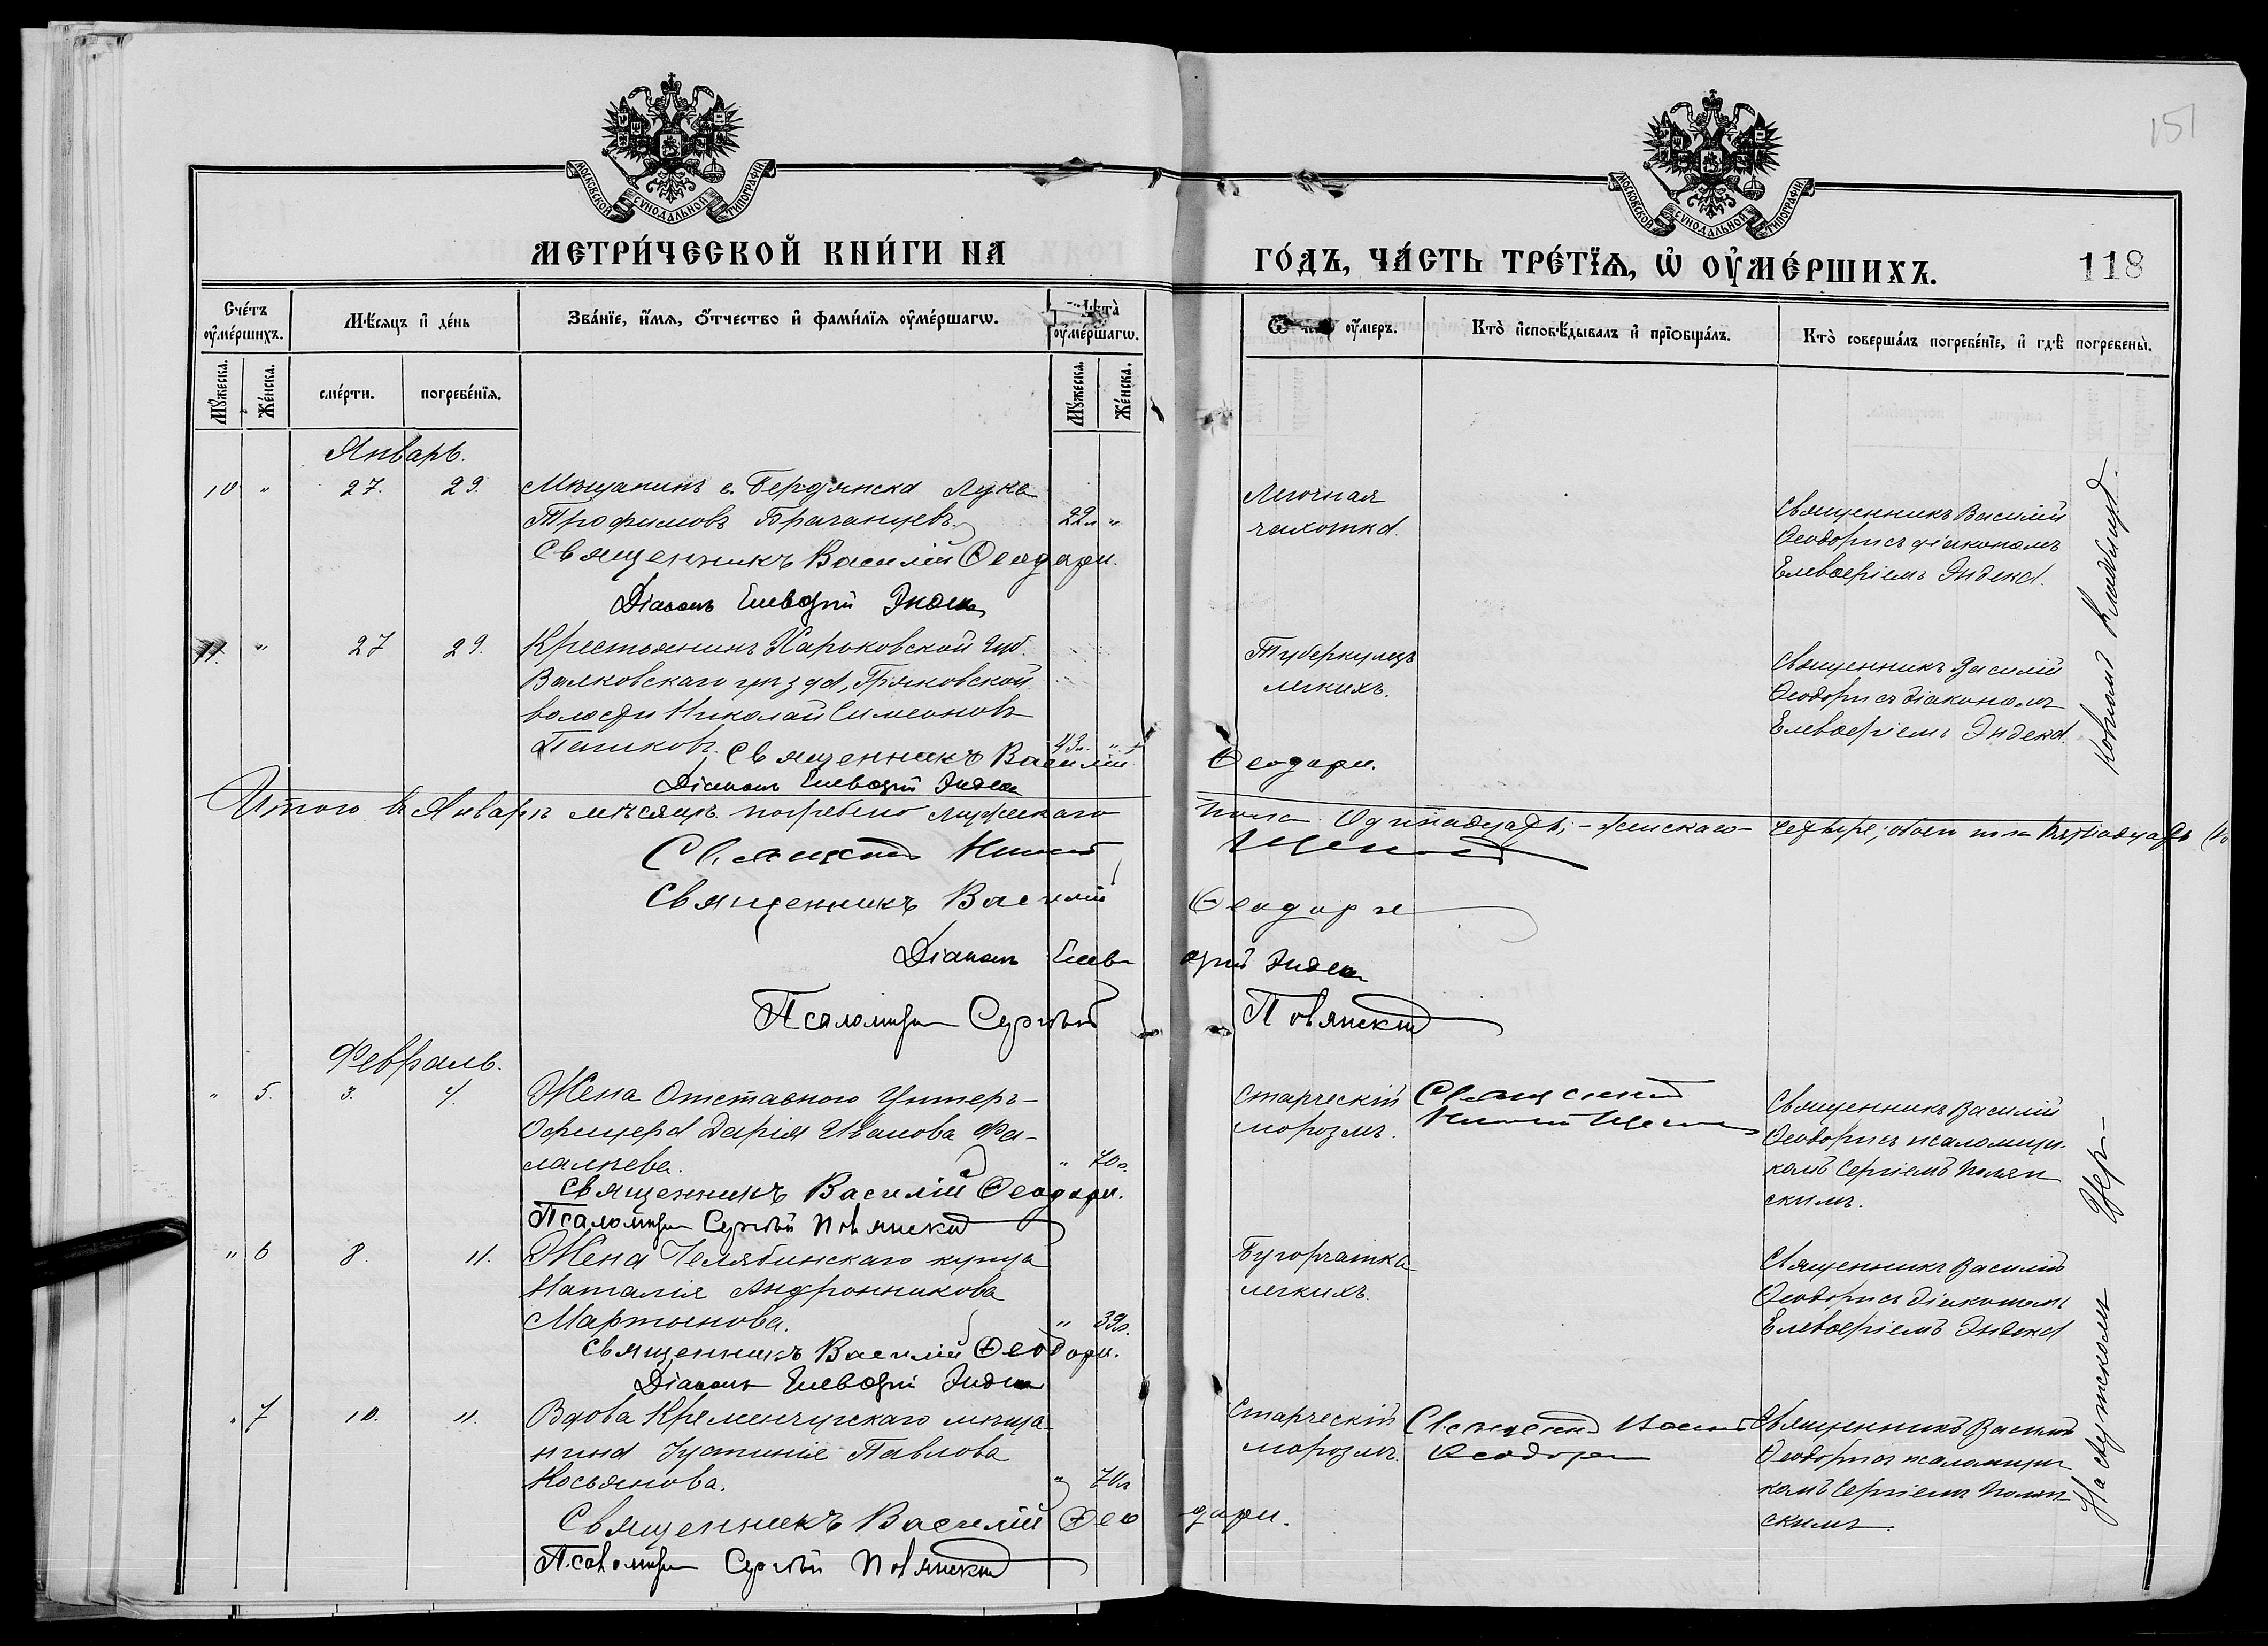 151
МОСКОВСКОЙ СѴНОДАЛЬНОЙ ТИПОГРАФІИ
МОСКОВСКОЙ СѴНОДАЛЬНОЙ ТИПОГРАФІИ
МЕТРИ́ЧЕСКОЙ КНИ́ГИ НА
ГО́ДЪ, ЧА́СТЬ ТРЕ́ТЇѦ, Ѡ҆ ОУ҆МЕ́РШИХЪ.
118
Сче́тъ оу҆ме́ршихъ.
Мѣ́сяцъ и҆ де́нь
Зва́нїе, и҆́мѧ, ѻ҆́тчество и҆ фами́лїѧ оу҆ме́ршагѡ.
Лѣ́та̀ оу҆ме́ршагѡ.
оу҆́меръ.
Кто̀ и҆сповѣ́дывалъ и҆ прїѡбща́лъ.
Кто̀ соверша́лъ погребе́нїе, и҆ гдѣ̀ погребены̀.
Мꙋ́жеска.
Же́нска.
сме́рти.
погребе́нїѧ.
Мꙋ́жеска.
Же́нска.
Январь.
10 " 27. 29. Мѣщанинъ г. Бердянска Лука
Трофимовъ Браганцевъ. 22л "
Священникъ Василій Ѳеодори.
Діаконъ Елевѳерій Индека
Легочная
чахотка.
Священникъ Василій
Ѳеодори съ діакономъ
Елевѳеріемъ Индека.
11. " 27 29. Крестьянинъ Харьковской губ.
Валковскаго уѣзда, Гряковской
волости Николай Симеоновъ
Пашковъ. 43л. "
Священникъ Василій Ѳеодори.
Діаконъ Елевѳерій Индека
Туберкулезъ
легкихъ.
Священникъ Василій
Ѳеодори съ діакономъ
Елевѳеріемъ Индека.
Новомъ кладбищѣ.
Итого въ Январѣ мѣсяцѣ погребено мужескаго пола одиннадцать; – женскаго – четыре; обоего пола пятнадцать
Священникъ
Священникъ Василій Ѳеодори
Діаконъ Елевѳерій Индека
Псаломщикъ Сергѣй Полянскій
Февраль.
" 5. 3. 4. Жена Отставного Унтеръ-
Офицера Дарія Иванова Фа-
лалѣева. " 70л.
Священникъ Василій Ѳеодори.
Псаломщикъ Сергѣй Полянскій
Старческій
морозмъ.
Священникъ
Священникъ Василій
Ѳеодори съ псаломщи-
комъ Сергіемъ Полян
скимъ.
" 6 8. 11. Жена Челябинскаго купца
Наталія Андронникова
Мартынова. " 39л.
Священникъ Василій Ѳеодори.
Діаконъ Елевѳерій Индека
Бугорчатка
легкихъ.
Священникъ Василій
Ѳеодори съ діакономъ
Елевѳеріемъ Индека
" 7 10. 11. Вдова Кременчугскаго мѣща-
нина Іустинія Павлова
Косьянова. " 70л
Священникъ Василій Ѳеодори.
Псаломщикъ Сергѣй Полянскій
Старческій
морозмъ.
Священникъ Василій
Ѳеодори
Священникъ Василій
Ѳеодори съ псаломщи
комъ Сергіемъ Полян-
скимъ.
На Аутскомъ